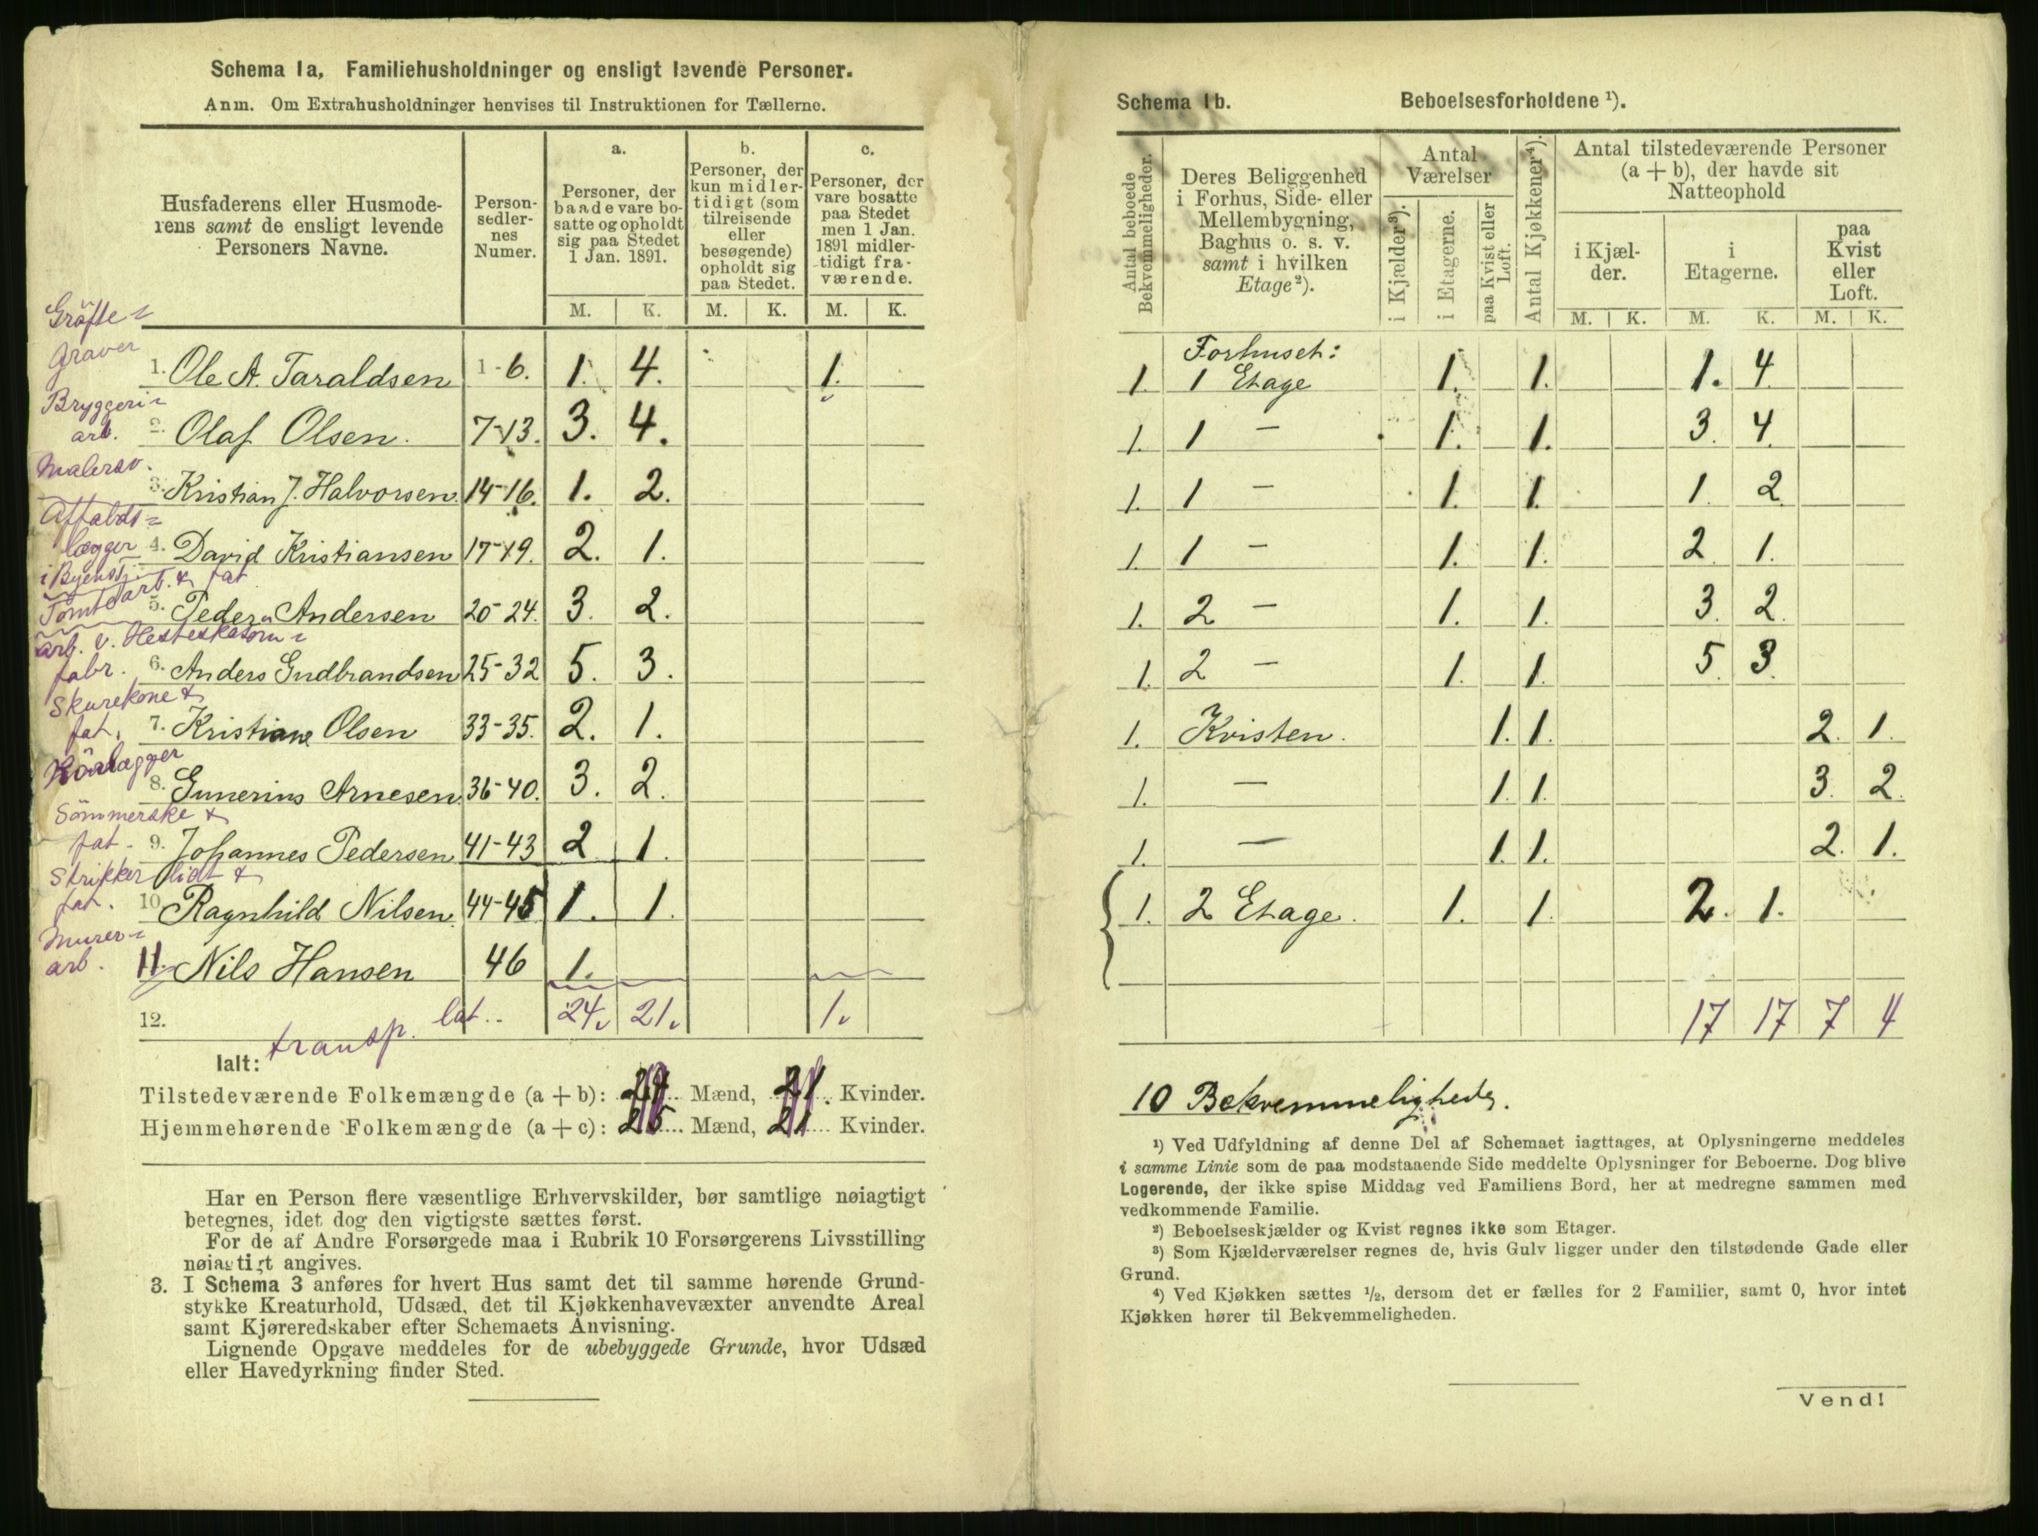 Schema 1a, Familiehusholdninger og ensligt levende Personer.
Anm. Om Extrahusholdninger henvises til Instruktionen for Tællerne.
Husfaderens eller Husmoderens samt de ensligt levende Personers Navne. | Personsedlernes Numer. | a. Personer, der baade vare bosatte og opholdt sig paa Stedet 1 Jan. 1891. | b. Personer, der kun midlertidigt (som tilreisende eller besøgende) opholdt sig paa Stedet. | c. Personer, der vare bosatte paa Stedet men 1 Jan. 1891 midlertidigt fraværende.
M. K. M. K. M. K.
Gröfte-
graver
1. Ole A. Taraldsen 1-6. 1. 4. 1.
Bryggeri-
arb. 2. Olaf Olsen. 7-13. 3. 4.
Malersv.
3. Kristian J. Halvorsen. 14-16. 1. 2.
Affalds-
lægger 4. David Kristiansen 17-19. 2. 1.
i Byens
Tomtearb. & fat
5. Peder Andersen 20-24. 3. 2.
arb. v. Hesteskosöm-
fabr. 6. Anders Gudbrandsen 25-32 5. 3.
Skurekone &
fat. 7. Kristiane Olsen 33-35. 2. 1.
Körlægger
8. Gunerius Arnesen 36-40. 3. 2.
Sömmerske &
fat. 9. Johannes Pedersen 41-43 2 1.
Strikker lidt &
fat. 10. Ragnhild Nilsen 44-45 1. 1.
Murer-
arb. 11. Nils Hansen 46 1.
12. lat. 24. 21. 1.
transp.
Ialt:
Tilstedeværende Folkemængde (a + b): 24 Mænd, 21. Kvinder.
Hjemmehørende Folkemængde (a + c): 25 Mænd, 21 Kvinder.
Har en Person flere væsentlige Erhvervskilder, bør samtlige nøiagtigt
betegnes, idet dog den vigtigste sættes først.
For de af Andre Forsørgede maa i Rubrik 10 Forsørgerens Livsstilling
nøiagtigt angives.
3. I Schema 3 anføres for hvert Hus samt det til samme hørende Grund-
stykke Kreaturhold, Udsæd, det til Kjøkkenhavevæxter anvendte Areal
samt Kjøreredskaber efter Schemaets Anvisning.
Lignende Opgave meddeles for de ubebyggede Grunde, hvor Udsæd
eller Havedyrkning finder Sted.
Schema 1b. Beboelsesforholdene ¹).
Antal beboede Bekvemmeligheder. | Deres Beliggenhed i Forhus, Side- eller Mellembygning, Baghus o. s. v. samt i hvilken Etage²). | Antal Værelser | i Kjælder³). | i Etagerne. | paa Kvist eller Loft. | Antal Kjøkkener⁴). | Antal tilstedeværende Personer (a + b), der havde sit Natteophold | i Kjælder. | i Etagerne. | paa Kvist eller Loft.
M. K. M. K. M. K.
Forhuset:
1. 1 Etage 1. 1. 1. 4
1. 1 — 1. 1. 3. 4.
1. 1 — 1. 1. 1. 2
1. 1 — 1. 1. 2 1.
1. 2 — 1. 1. 3. 2.
1. 2 — 1. 1. 5. 3.
1. Kvisten. 1. 1. 2. 1.
1. — 1. 1. 3. 2.
1. — 1. 1. 2. 1.
1. 2 Etage. 1. 1. 2. 1.
17 17 7 4
10 Bekvemmeligheder.
¹) Ved Udfyldning af denne Del af Schemaet iagttages, at Oplysningerne meddeles
i samme Linie som de paa modstaaende Side meddelte Oplysninger for Beboerne. Dog blive
Logerende, der ikke spise Middag ved Familiens Bord, her at medregne sammen med
vedkommende Familie.
²) Beboelseskjælder og Kvist regnes ikke som Etager.
³) Som Kjælderværelser regnes de, hvis Gulv ligger under den tilstødende Gade eller
Grund.
⁴) Ved Kjøkken sættes ½, dersom det er fælles for 2 Familier, samt 0, hvor intet
Kjøkken hører til Bekvemmeligheden.
Vend!